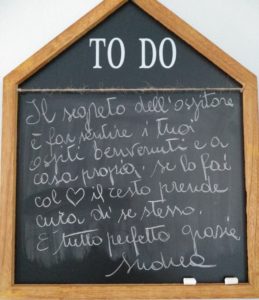 TO DO
Il segreto dell'ospitare
è far sentire i tuoi
ospiti benvenuti e a
casa propria, se lo fai
col ♡ il resto prende
cura di se stesso.
E tutto perfetto grazie
Andrea